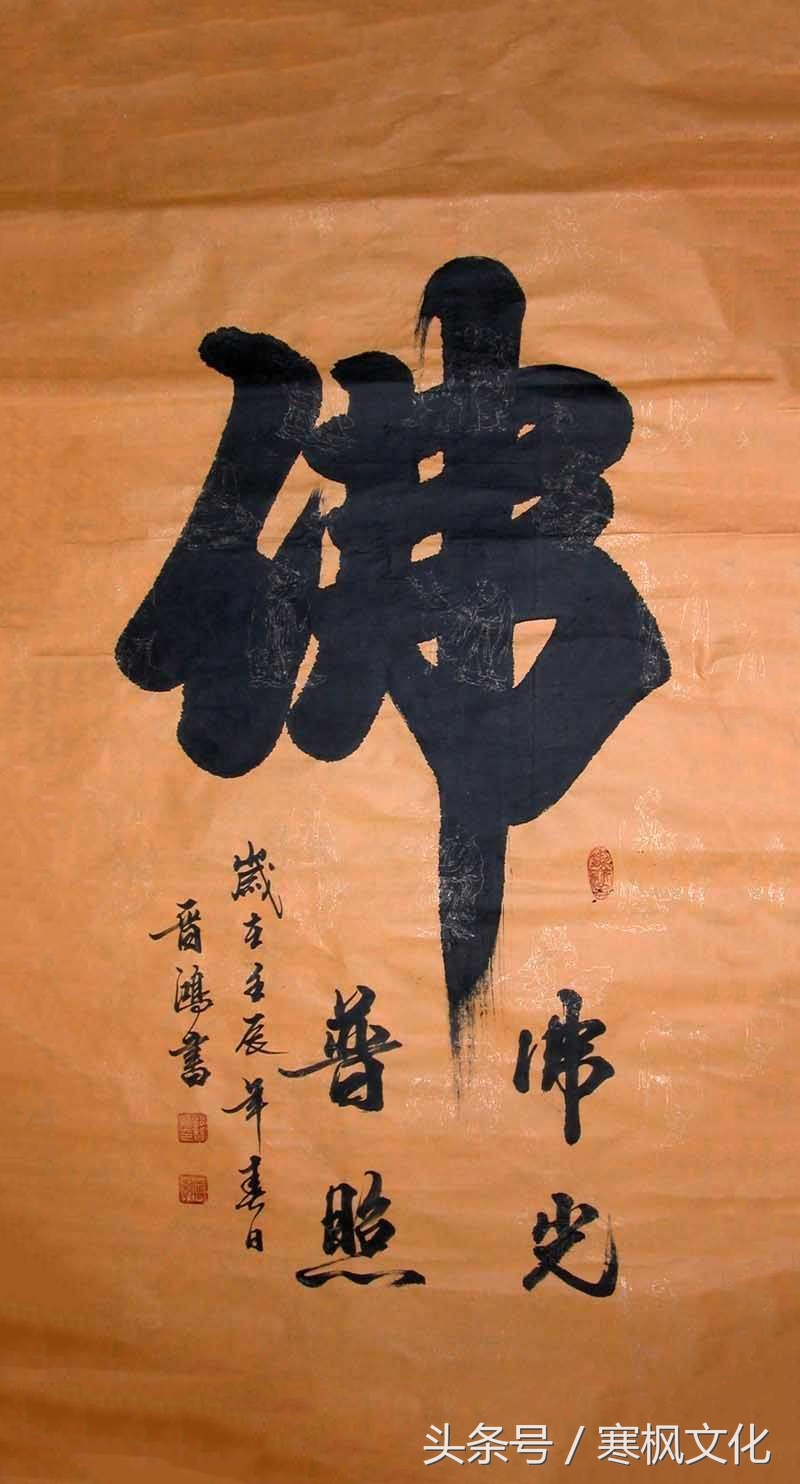 佛
佛光
普照
歲在壬辰年春日
晋鴻書
头条号 / 寒枫文化